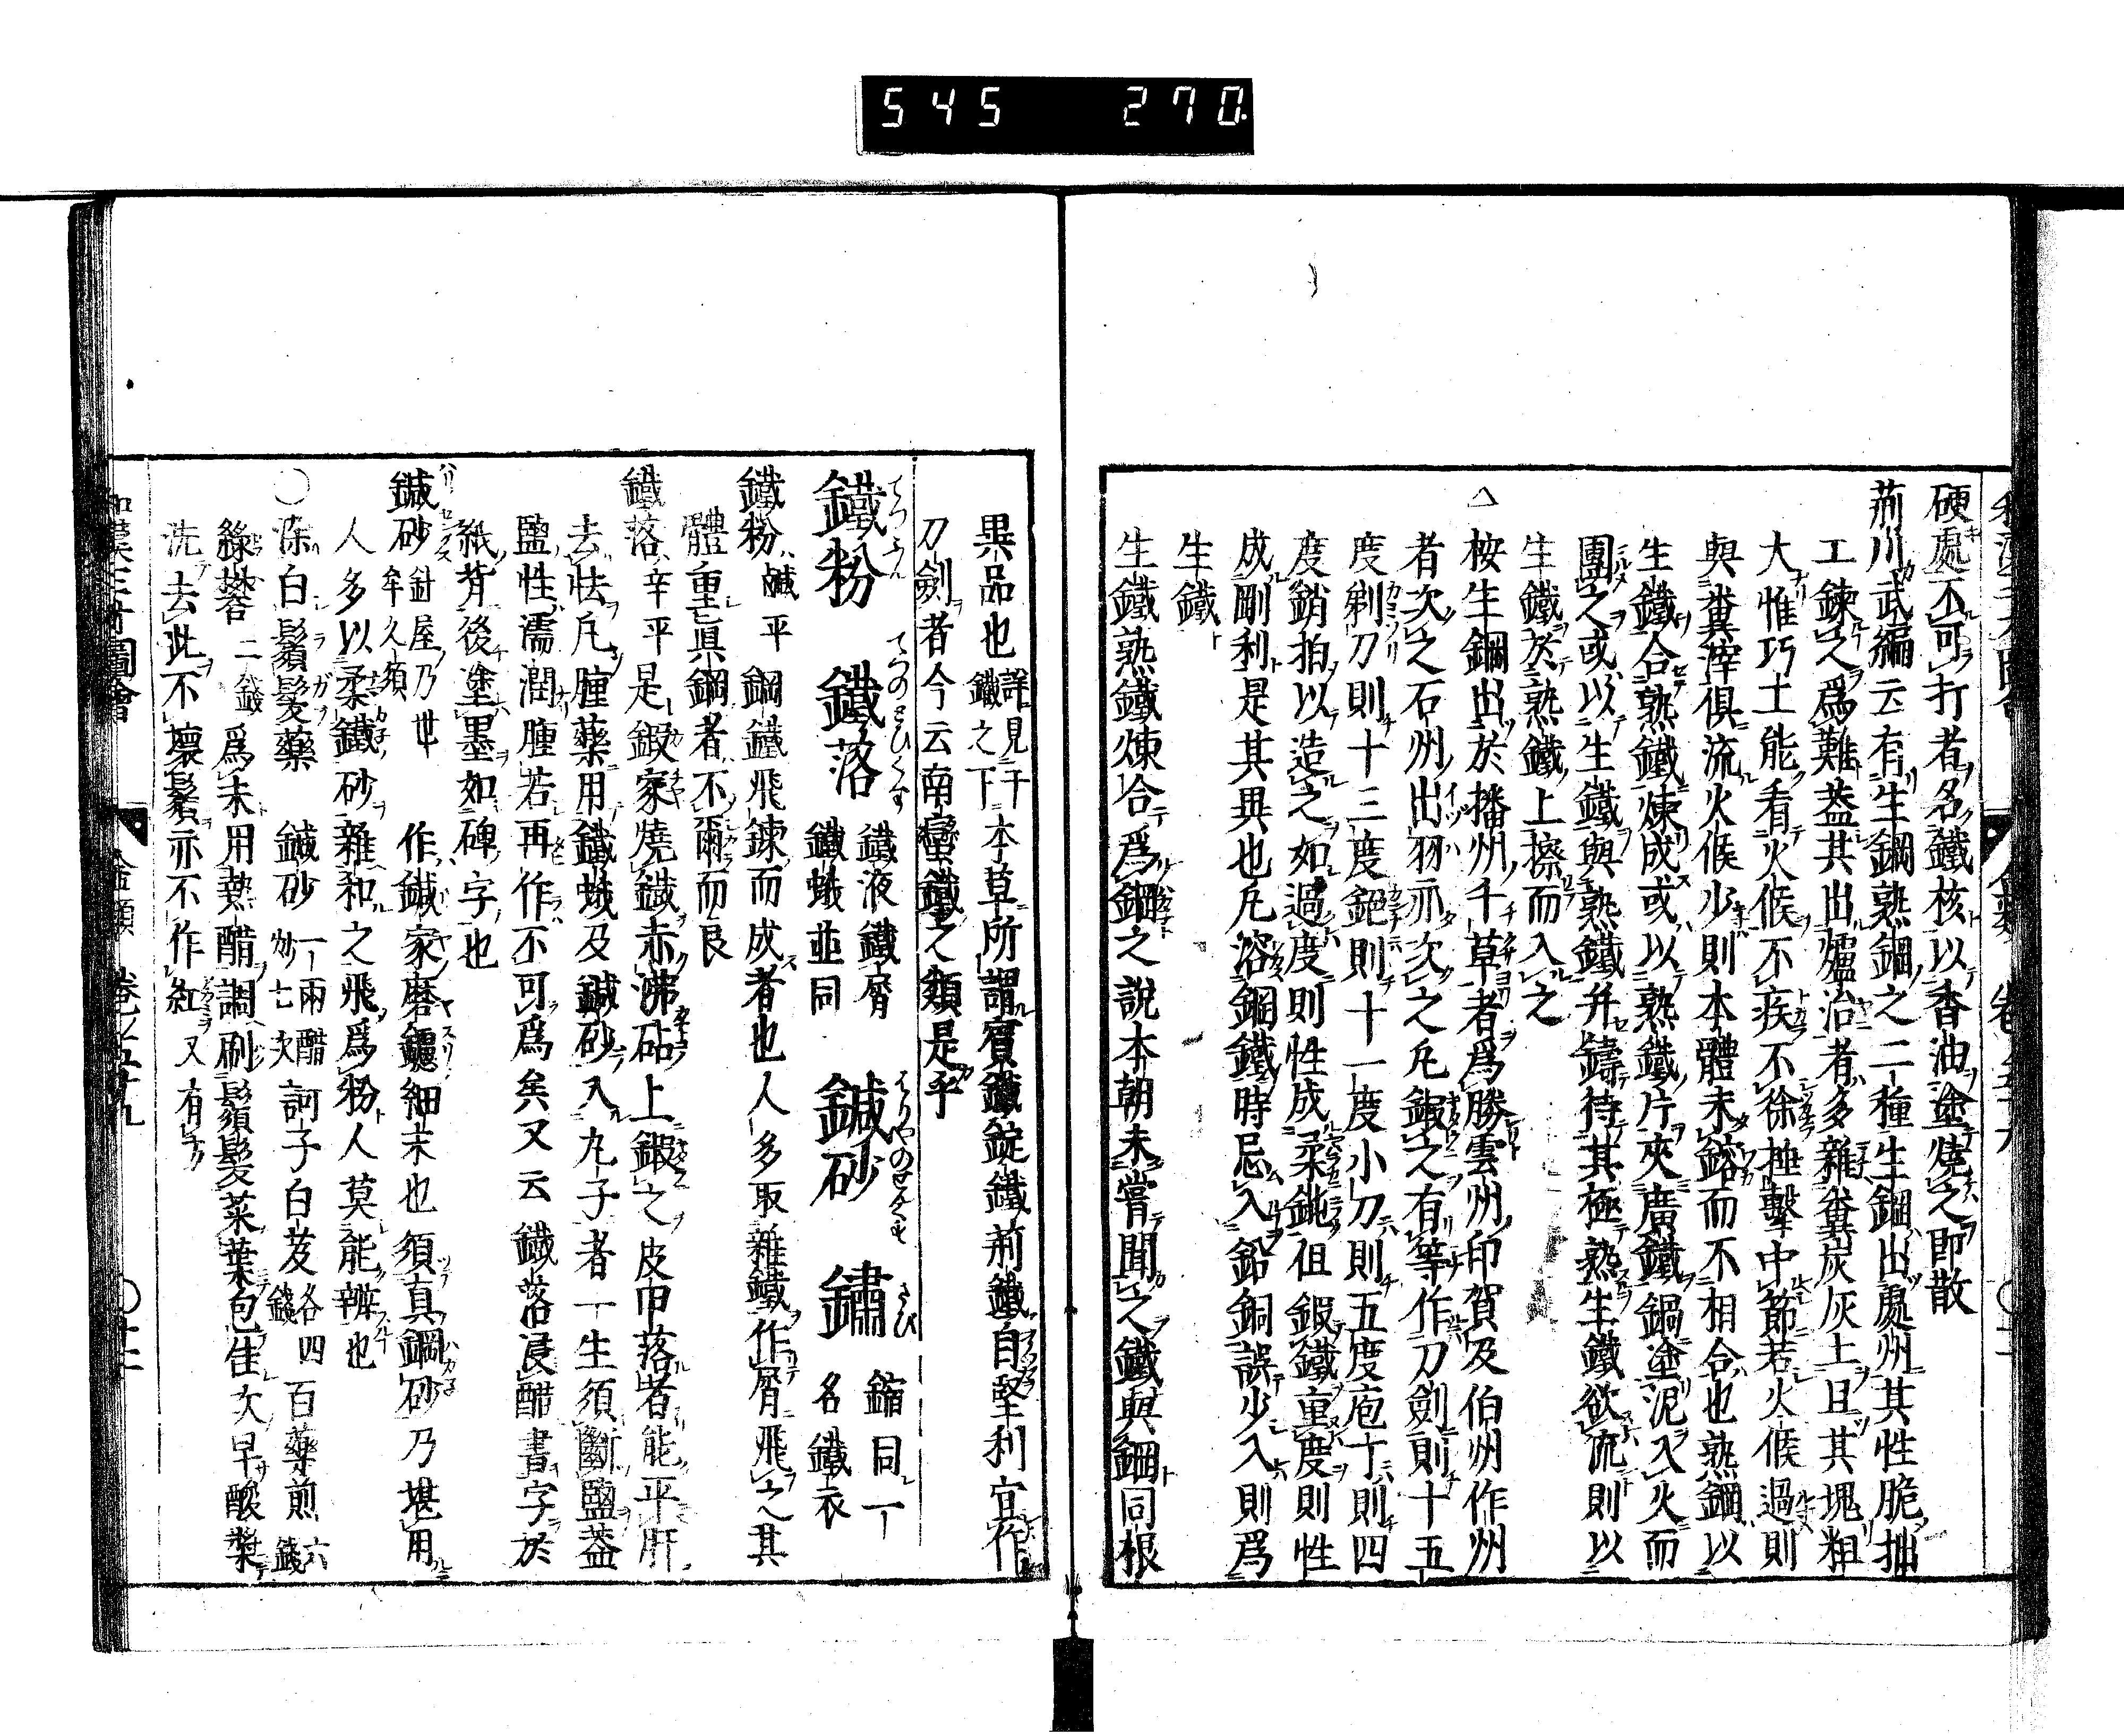 545 270
硬處不可打者名鐵核以香油塗燒之即散
荊川武編云有生鋼熟鋼之二種生鋼出處州其性脆拙
工鍊之爲難葢其出爐冶者多雜糞炭灰土且其塊粗
大惟巧土能看火候不疾不徐捶擊中節若火候過則
與糞滓俱流火候少則本體未鎔而不相合也熟鋼以
生鐵合熟鐵煉成或以熟鐵片夾廣鐵鍋塗泥入火而
團之或以生鐵與熟鐵并鑄待其極熟生鐵欲流則以
生鐵於熟鐵上擦而入之
△按生鋼出於播州千草者爲勝雲州印賀及伯州作州
者次之石州出羽亦次之凡鍜之有等作刀劍則十五
度剃刀則十三度鉋則十一度小刀則五度庖丁則四
度銷拍以造之如過度則性成柔鈍徂鍜鐵重度則性
成剛利是其異也凡溶鋼鐵時忌入鉛銅誤少入則爲
生鐵
生鐵熟鐵煉合爲鋼之說本朝未嘗聞之鐵與鋼同根
異品也 詳見于鐵之下 本草所謂賓鐵錠鐵荊鐵自堅利宜作
刀劍者今云南蠻鐵之類是乎
鐵粉 てつふん 鐵落 てつのこひくす 鐵液鐵屑鐵蛾並同 鍼砂 はりやのせんくず 鏽 さび 鏥同一名鐵衣
鐵粉 鹹平 鋼鐵飛鍊而成者也人多取雜鐵作屑飛之其
體重眞鋼者不爾而良
鐵落 辛平 是鍜家燒鐵赤沸砧上鍜之皮甲落者能平肝
去怯凡腫藥用鐵蛾及鍼砂入丸子者一生須斷鹽葢
鹽性濡潤腫若再作不可爲矣又云鐵落浸醋書字於
紙背後塗墨如碑字也
鍼砂 針屋乃世牟久須 作鍼家磨鑢細末也須真鋼砂乃堪用
人多以柔鐵砂雜和之飛爲粉人莫能辨也
○染白鬚髮藥 鍼砂一兩醋炒七次 訶子白芨各四錢 百藥煎六錢
綠礬二錢 爲末用熱醋調刷鬚髮菜葉包住次早酸漿
洗去此不壞鬚亦不作紅又有
和漢三才圖會 金類 卷之五十九